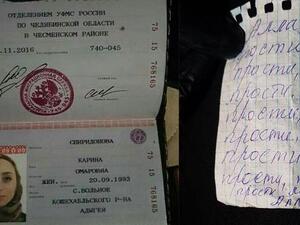 ОТДЕЛЕНИЕМ УФМС РОССИИ
ПО ЧЕЛЯБИНСКОЙ ОБЛАСТИ
В ЧЕСМЕНСКОМ РАЙОНЕ
.11.2016 740-045
75 15 768165
СПИРИДОНОВА
КАРИНА
ОМАРОВНА
ЖЕН. 20.09.1993
С.ВОЛЬНОЕ
КОШЕХАБЛЬСКОГО Р-НА
АДЫГЕЯ
75 15 768165
Алла
прости
прости
прости
прости
прости
прости
прости